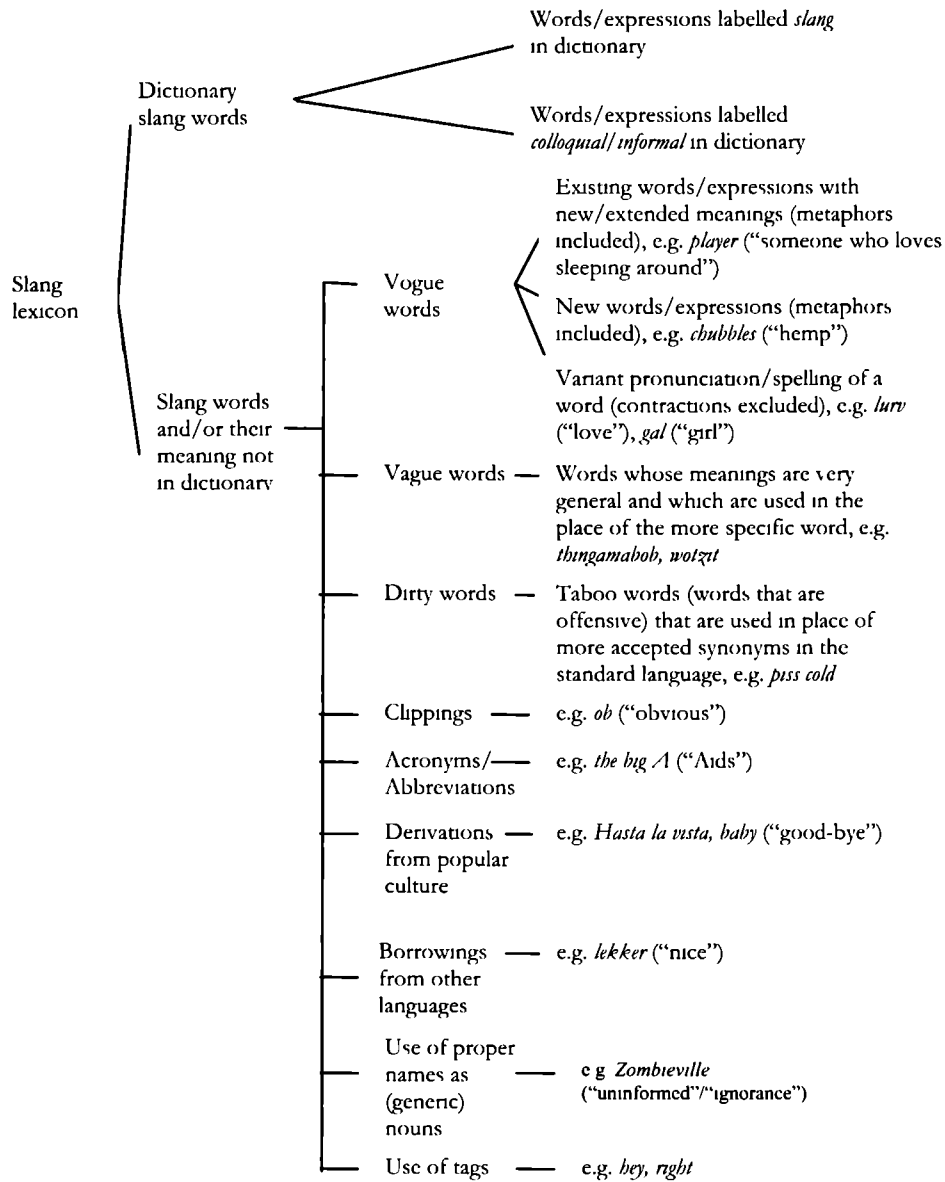 Words/expressions labelled slang
in dictionary
Dictionary
slang words
Words/expressions labelled
colloquial/informal in dictionary
Slang
lexicon
Slang words
and/or their
meaning not
in dictionary
Vogue
words
Existing words/expressions with
new/extended meanings (metaphors
included), e.g. player (“someone who loves
sleeping around”)
New words/expressions (metaphors
included), e.g. chubbles (“hemp”)
Variant pronunciation/spelling of a
word (contractions excluded), e.g. lurv
(“love”), gal (“girl”)
Vague words
Words whose meanings are very
general and which are used in the
place of the more specific word, e.g.
thingamabob, wotzit
Dirty words
Taboo words (words that are
offensive) that are used in place of
more accepted synonyms in the
standard language, e.g. piss cold
Clippings
e.g. ob (“obvious”)
Acronyms/
Abbreviations
e.g. the big A (“Aids”)
Derivations
from popular
culture
e.g. Hasta la vista, baby (“good-bye”)
Borrowings
from other
languages
e.g. lekker (“nice”)
Use of proper
names as
(generic)
nouns
e g Zombieville
(“uninformed”/“ignorance”)
Use of tags
e.g. hey, right